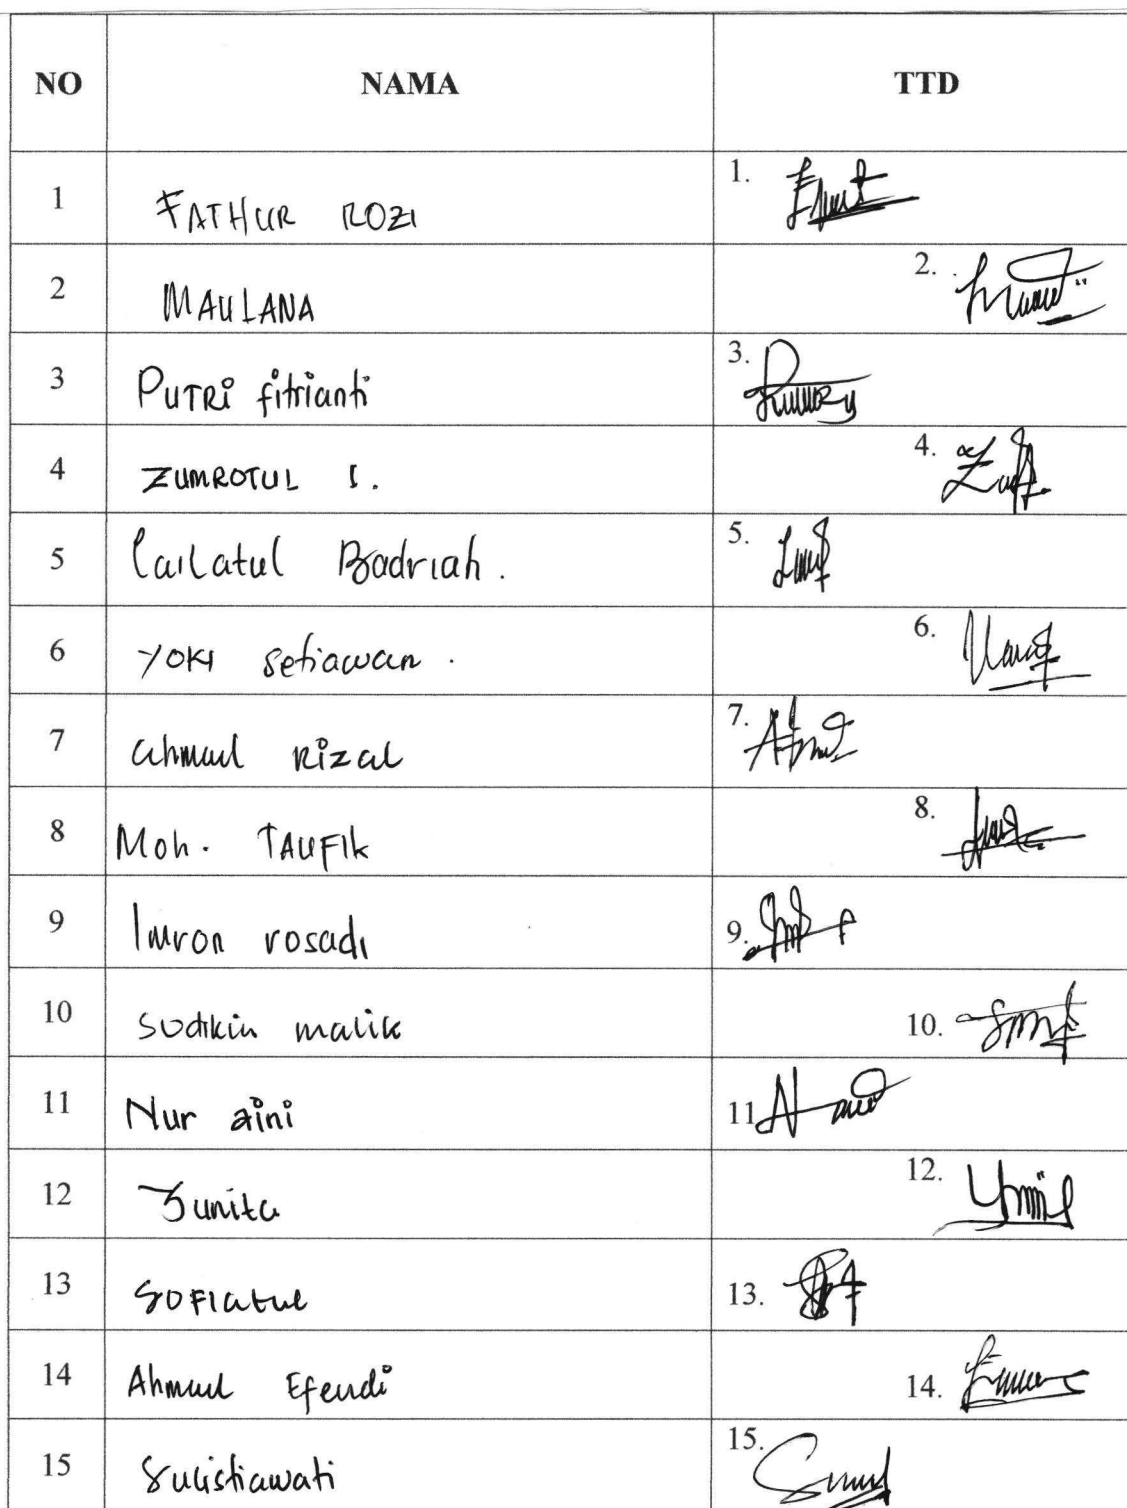 NO NAMA TTD
1 FATHUR ROZI 1.
2 MAULANA 2.
3 PUTRi fitrianti 3.
4 ZUMROTUL I. 4.
5 Lailatul Badriah. 5.
6 YOKI setiawan. 6.
7 ahmad Rizal 7.
8 Moh. TAUFIK 8.
9 Imron rosadi 9.
10 Sodikin malik 10.
11 Nur aini 11
12 Junita 12.
13 SOFIatul 13.
14 Ahmad Efendi 14.
15 Sulistiawati 15.